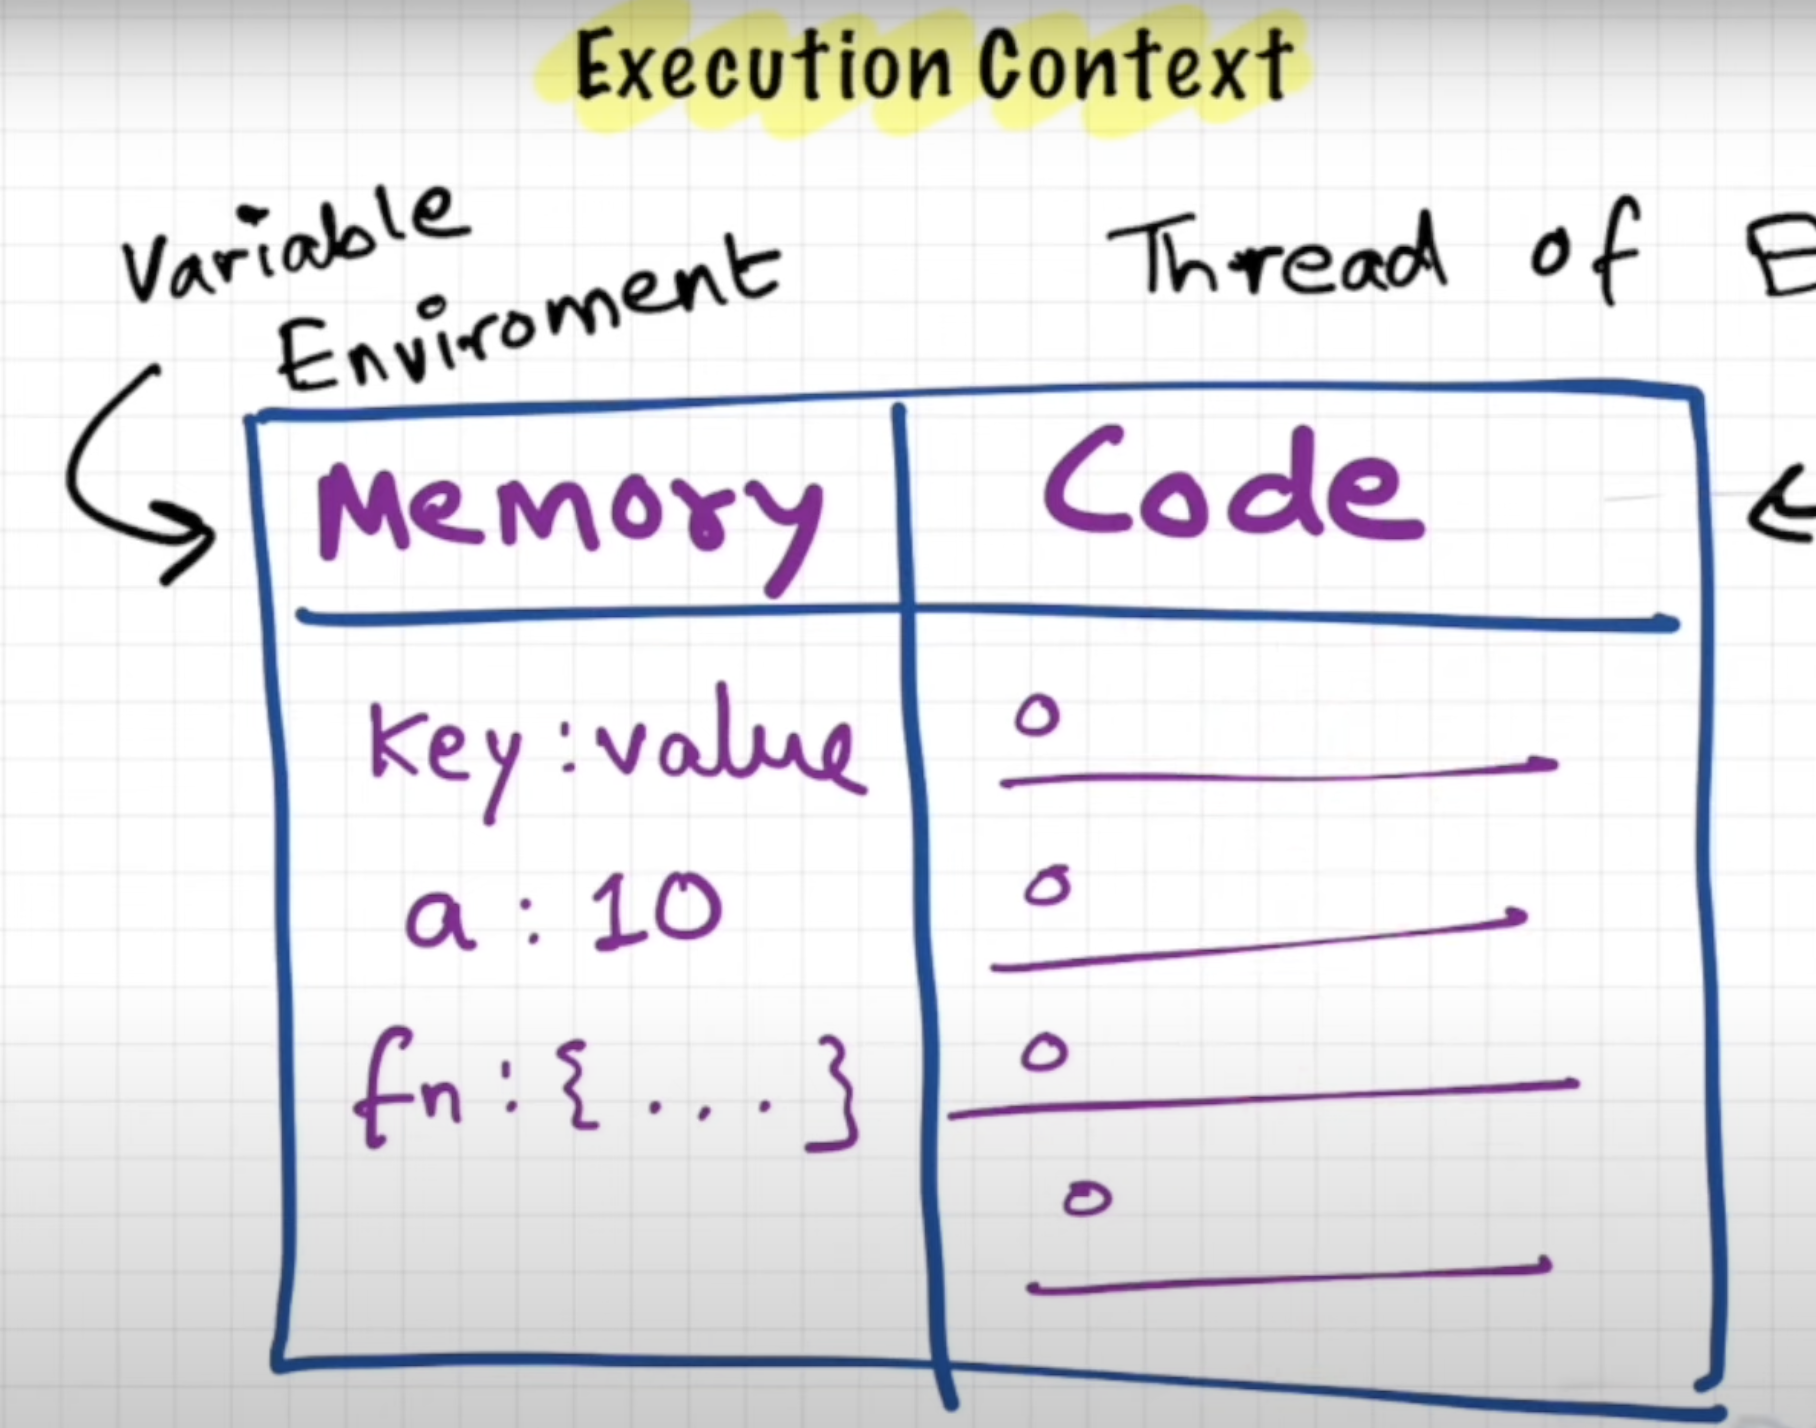 Execution Context
Variable
Enviroment
Thread of E
Memory
Code
key : value
a : 10
fn : { . . . }